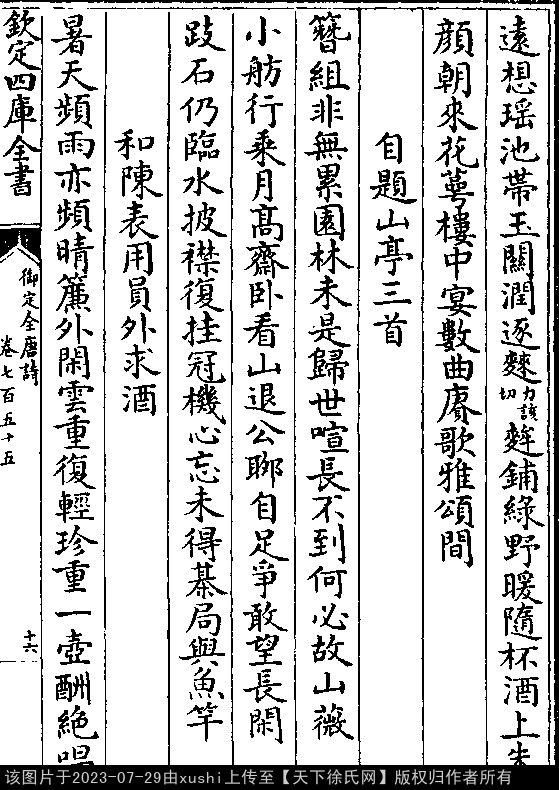 遠想瑶池帶玉關潤逐麳力該切麰鋪緑野暖隨杯酒上朱
顔朝來花萼樓中宴數曲賡歌雅頌間
自題山亭三首
簪組非無累園林未是歸世喧長不到何必故山薇
小舫行乘月髙齋卧看山退公聊自足爭敢望長閑
跂石仍臨水披襟復挂冠機心忘未得棊局與魚竿
和陳表用員外求酒
暑天頻雨亦頻晴簾外閑雲重復輕珍重一壺酬絶唱
欽定四庫全書
御定全唐詩
卷七百五十五
十六
该图片于2023-07-29由xushi上传至【天下徐氏网】版权归作者所有